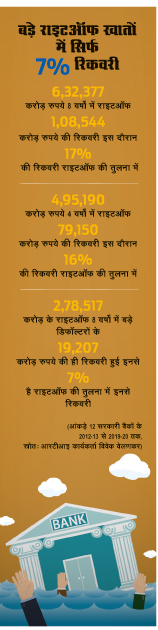 बड़े राइटऑफ खातों
में सिर्फ
7% रिकवरी
6,32,377
करोड़ रुपये 8 वर्षों में राइटऑफ
1,08,544
करोड़ रुपये की रिकवरी इस दौरान
17%
की रिकवरी राइटऑफ की तुलना में
4,95,190
करोड़ रुपये 4 वर्षों में राइटऑफ
79,150
करोड़ रुपये की रिकवरी इस दौरान
16%
की रिकवरी राइटऑफ की तुलना में
2,78,517
करोड़ के राइटऑफ 8 वर्षों में बड़े
डिफॉल्टरों के
19,207
करोड़ रुपये की ही रिकवरी हुई इनसे
7%
है राइटऑफ की तुलना में इनसे
रिकवरी
(आंकड़े 12 सरकारी बैंकों के
2012-13 से 2019-20 तक,
स्रोत: आरटीआइ कार्यकर्ता विवेक वेलणकर)
BANK